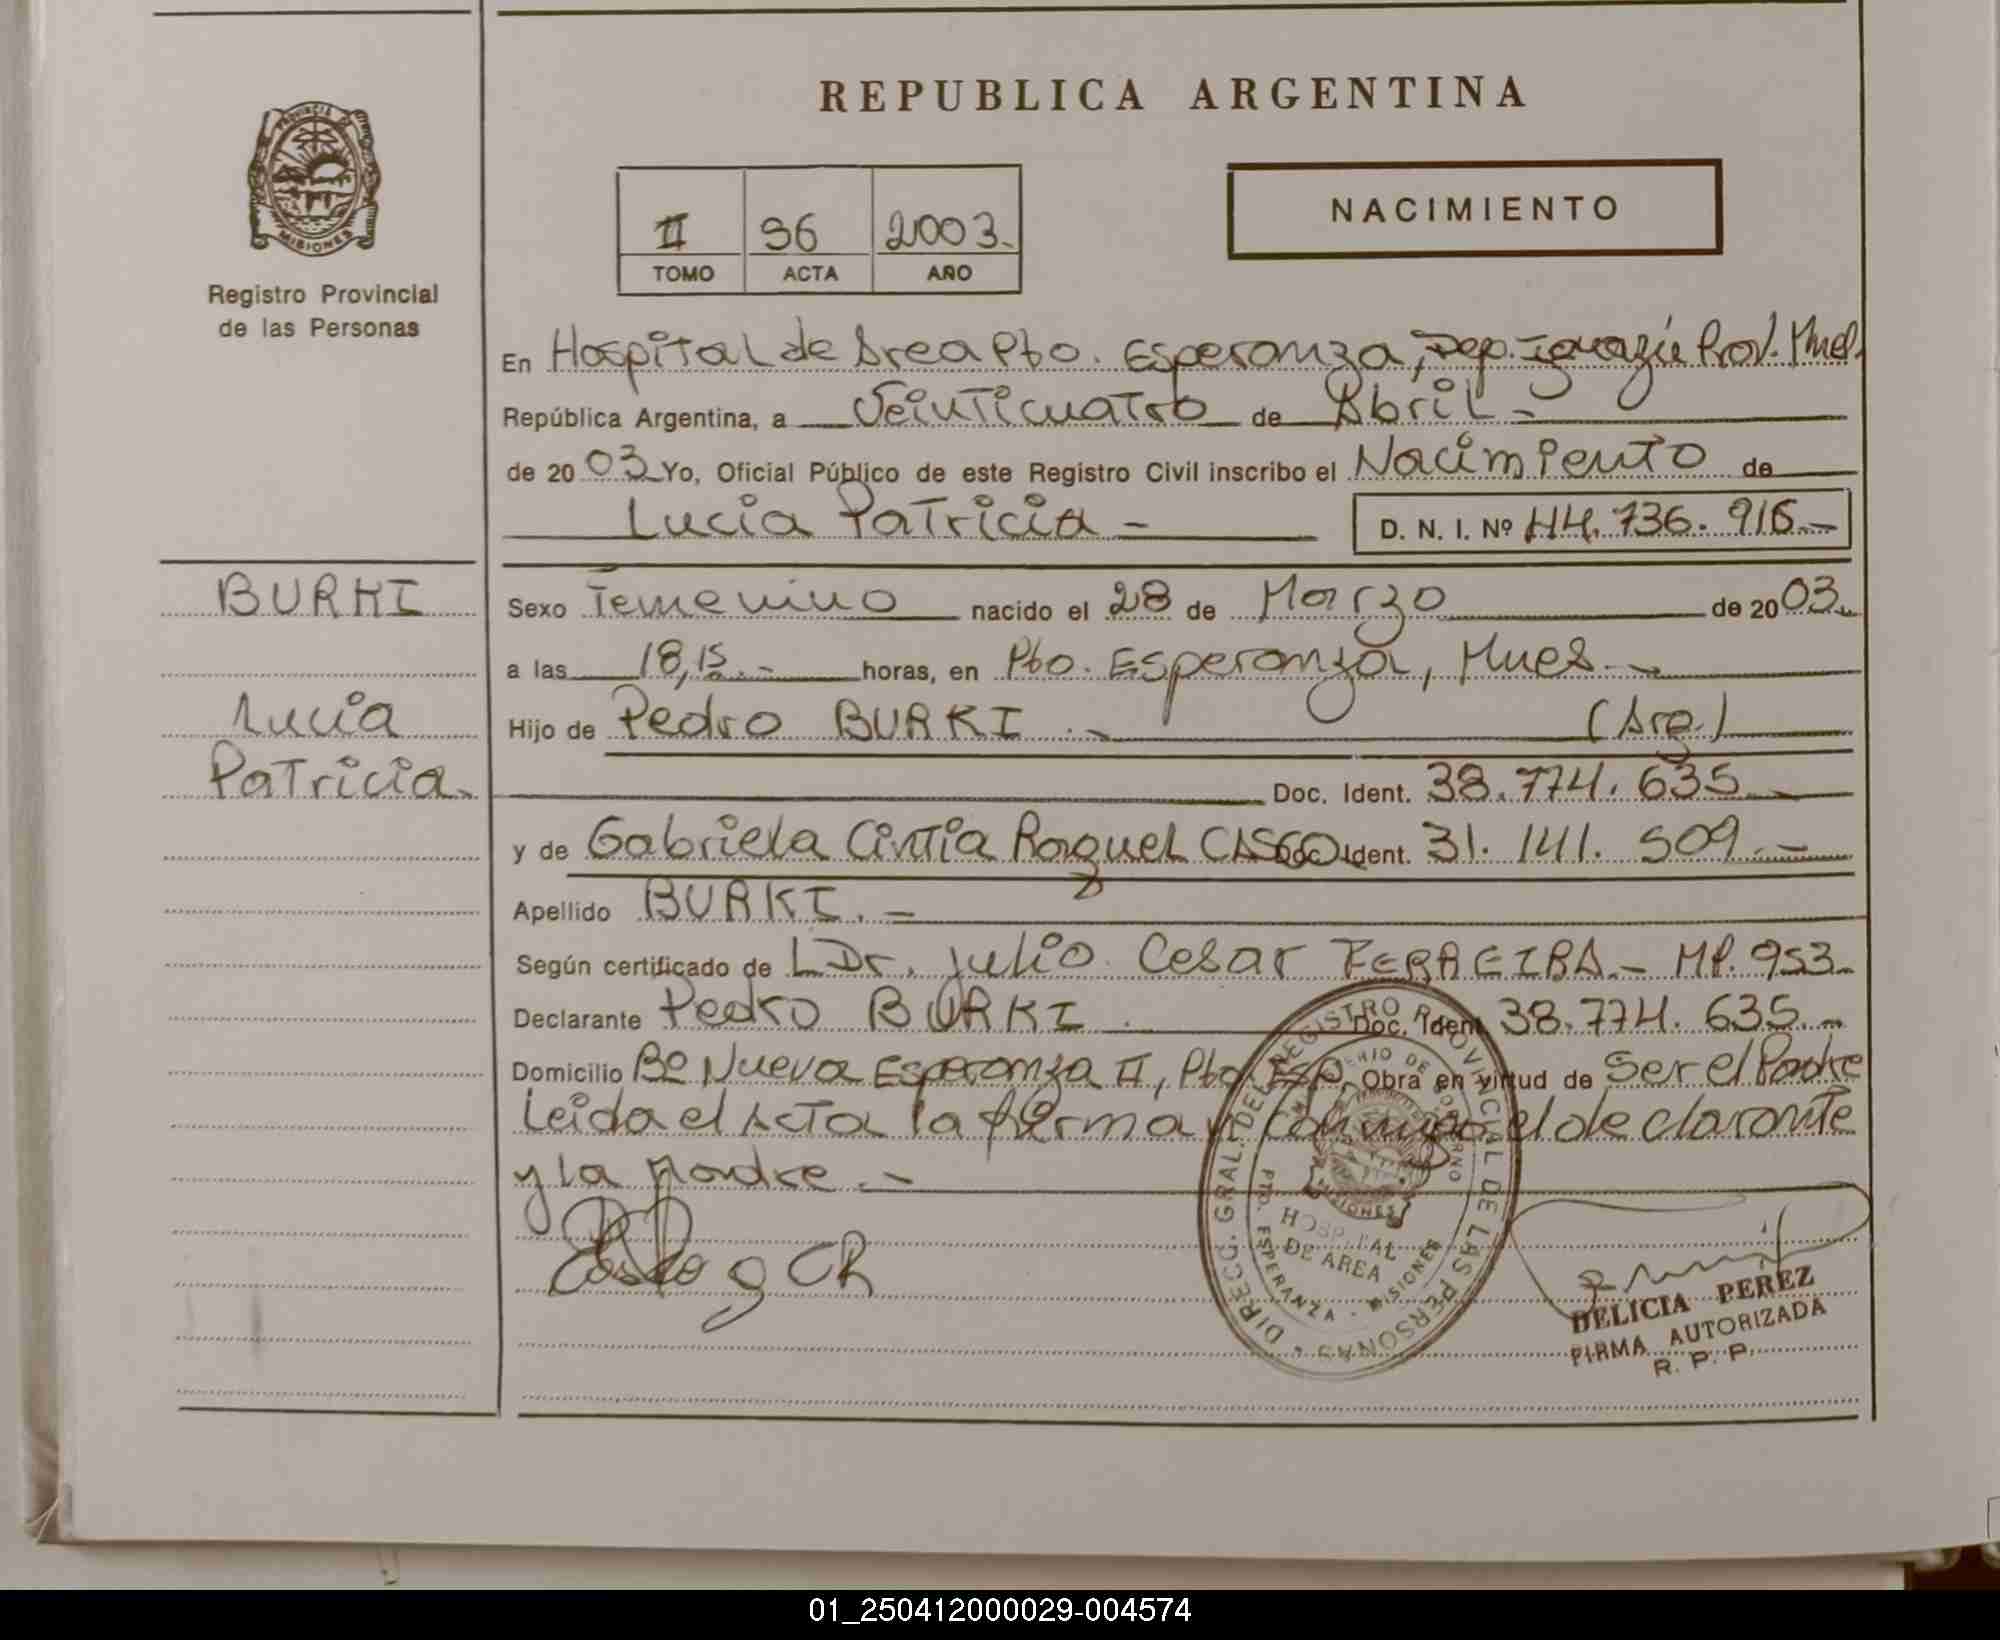 REPUBLICA ARGENTINA
PROVINCIA DE
MISIONES
Registro Provincial
de las Personas
II 96 2003.-
TOMO ACTA AÑO
NACIMIENTO
En Hospital de Area Pto. Esperanza, Dep. Iguazú Prov. Mnes.
República Argentina, a Veinticuatro de Abril.-
de 2003 Yo, Oficial Público de este Registro Civil inscribo el Nacimiento de
Lucia Patricia -
D. N. I. Nº 44.736.916.-
BURKI
Lucia
Patricia.
Sexo Femenino nacido el 28 de Marzo de 2003.
a las 18,15.- horas, en Pto. Esperanza, Mnes.-
Hijo de Pedro BURKI.- (Arg.)
Doc. Ident. 38.774.635.-
y de Gabriela Cintia Raquel CASCO Doc. Ident. 31.141.509.-
Apellido BURKI.-
Según certificado de Dr. Julio Cesar FERREIRA.- MP. 953.
Declarante Pedro BURKI. Doc. Ident. 38.774.635.-
Domicilio Bº Nueva Esperanza II, Pto. Esp. Obra en virtud de Ser el Padre
Leida el Acta la firma conmigo el declarante
y la madre.-
DIRECC. GRAL. DEL REGISTRO PROVINCIAL DE LAS PERSONAS
HOSPITAL
DE AREA
PTO. ESPERANZA - MISIONES
DELICIA PEREZ
FIRMA AUTORIZADA
R. P. P.
01_250412000029-004574